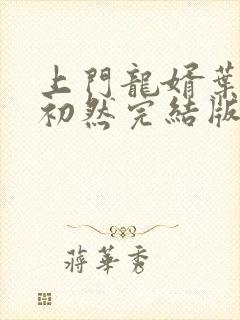 上門龍婿葉
初然完結版
蔣華秀